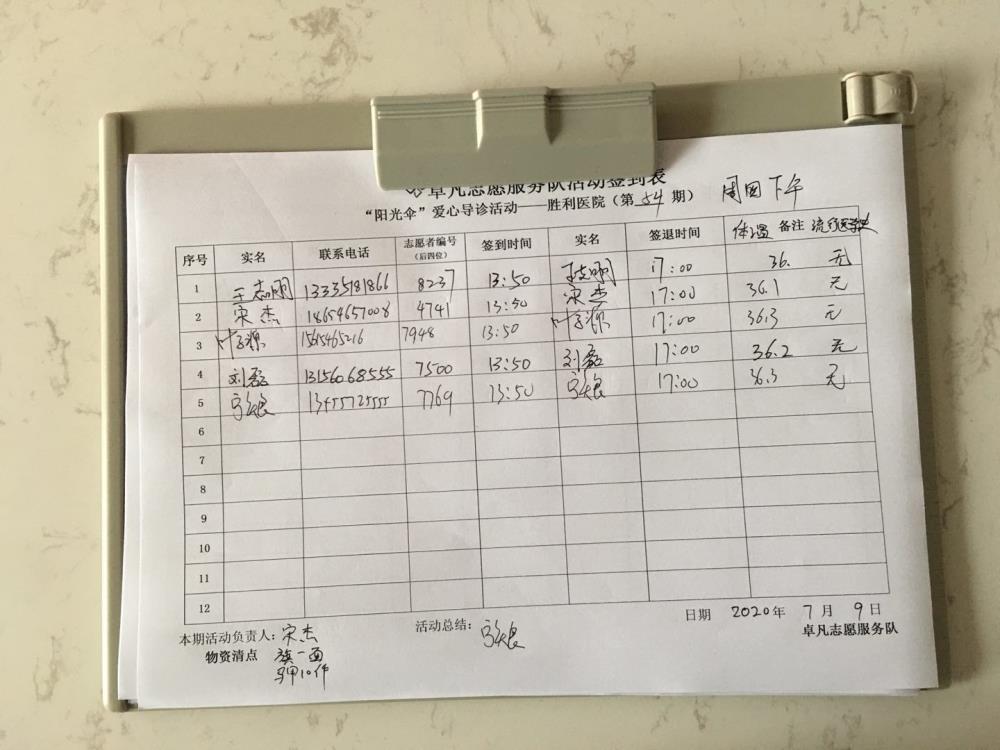 卓凡志愿服务队活动签到表
“阳光伞”爱心导诊活动——胜利医院（第54期） 周四下午
序号 实名 联系电话 志愿者编号（后四位） 签到时间 实名 签退时间 体温 备注 流行病史
1 于志明 13335181866 8237 13:50 于志明 17:00 36. 无
2 宋杰 18654657008 4741 13:50 宋杰 17:00 36.1 无
3 15615465216 7948 13:50 17:00 36.3 无
4 刘磊 13156068555 7500 13:50 刘磊 17:00 36.2 无
5 7769 13:50 17:00 36.3 无
6
7
8
9
10
11
12
日期 2020年7月9日
本期活动负责人：宋杰 活动总结：
卓凡志愿服务队
物资清点 旗一面
马甲10件